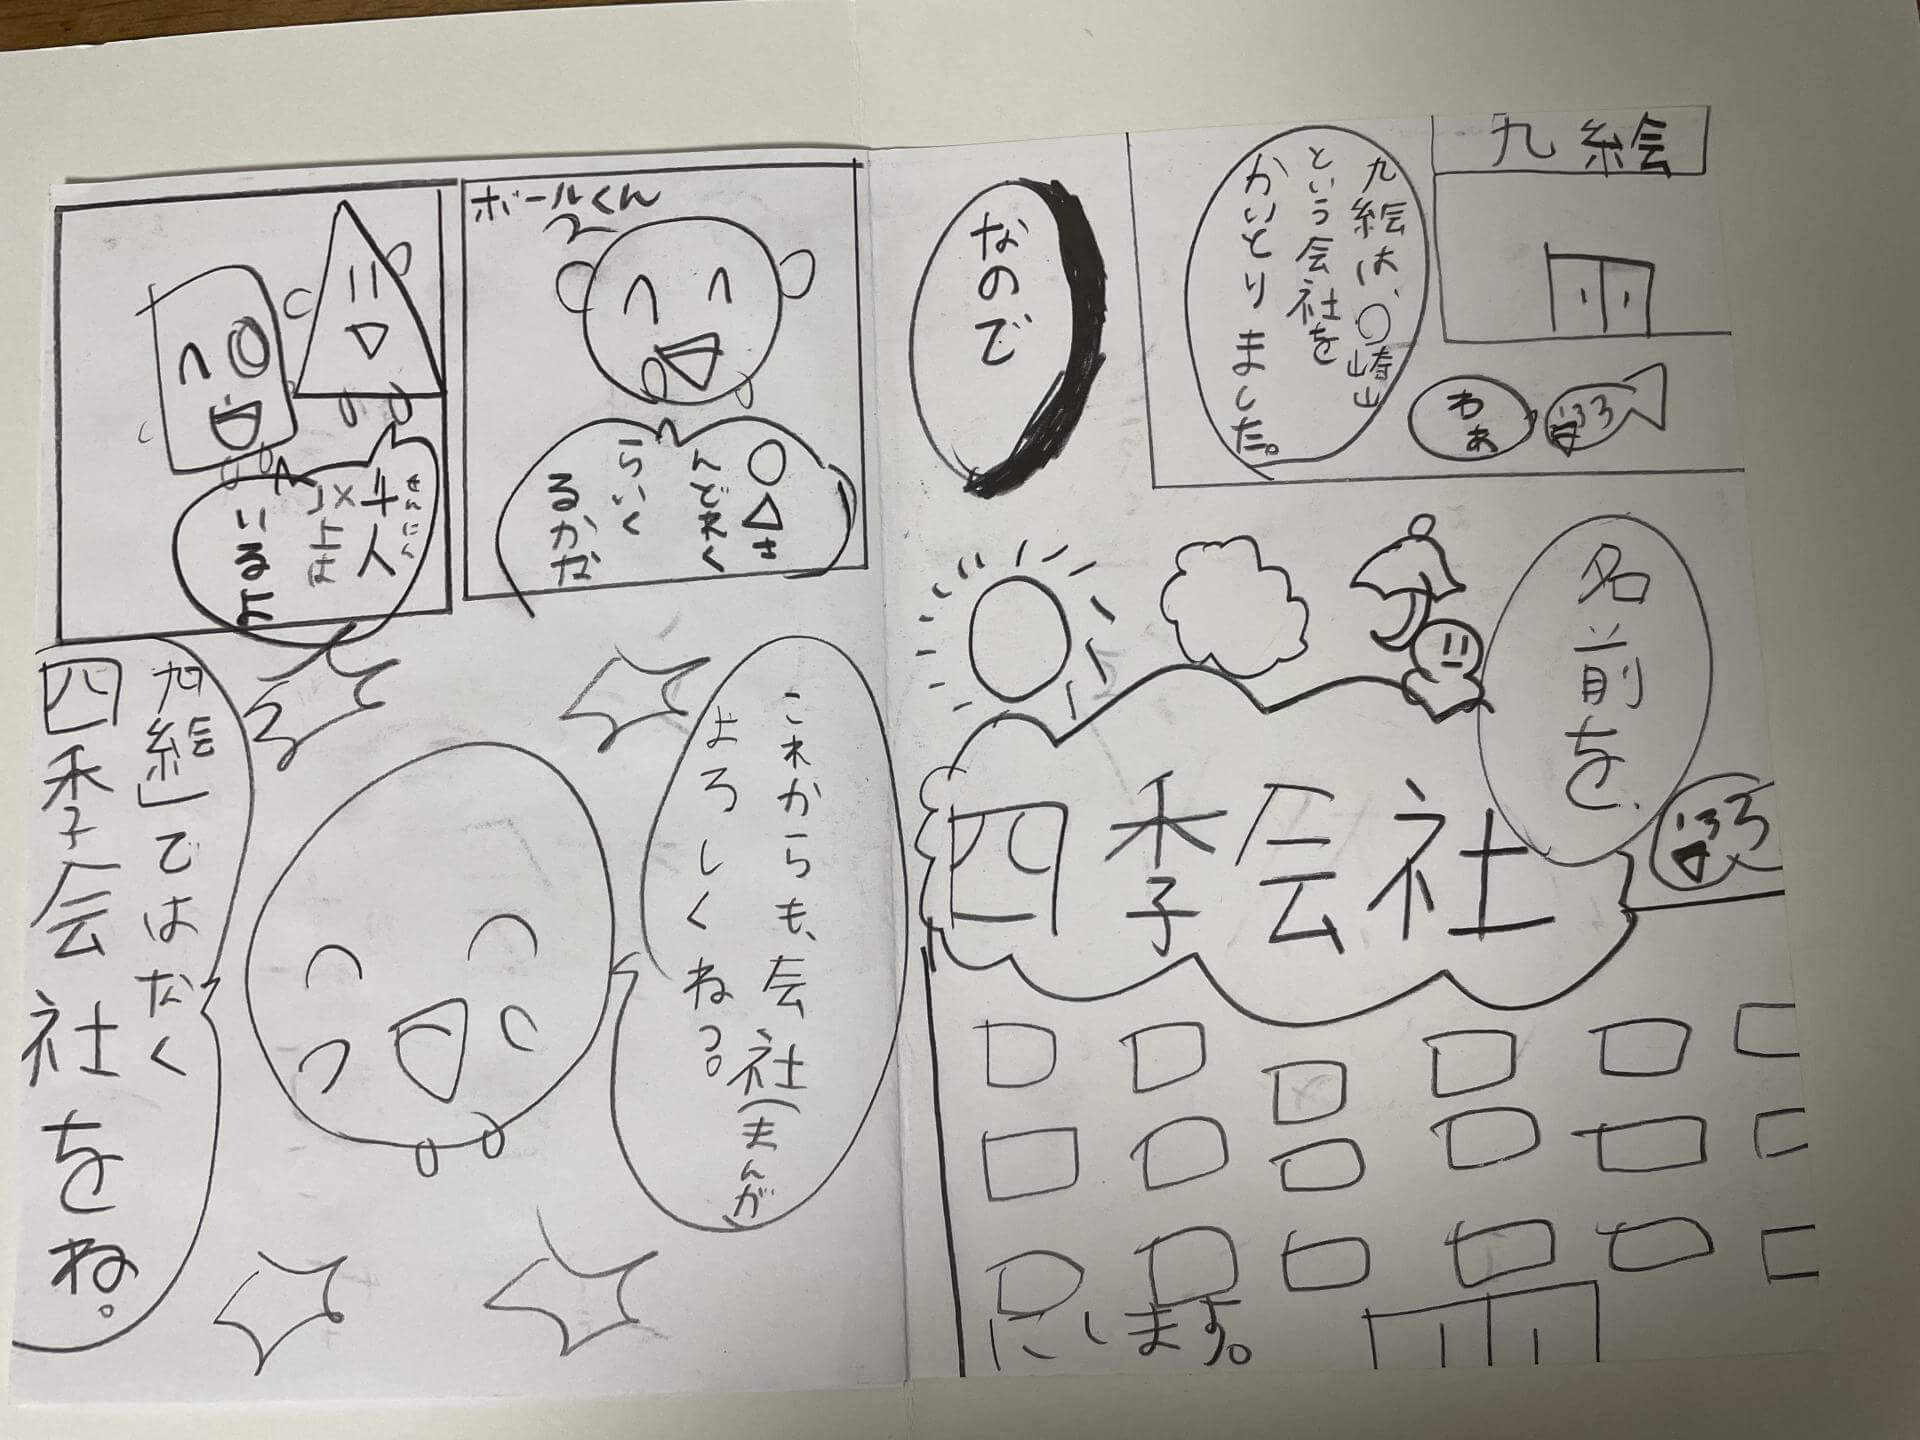 九絵
九絵は、〇崎山
という会社を
かいとりました。
わぁ
なので
名前を、
四季会社
にします。
ボールくん
〇△さ
んどれく
らいく
るかな
せんにん
千人
以上は
いるよ
これからも、会社(まんが
よろしくねっ。
九絵」ではなく
四季会社をね。